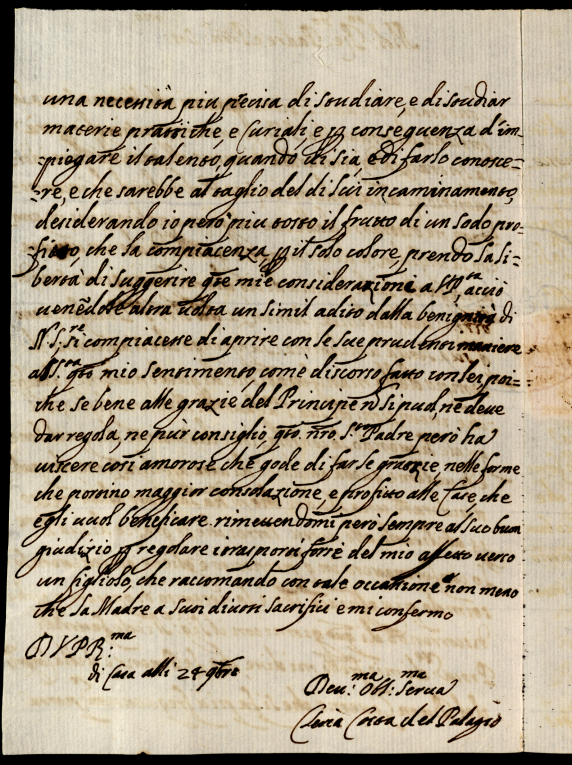 una necessità piu precisa di studiare, e di studiar
materie prattiche, e Curiali, e p consequenza d'im-
-piegare il talento, quando vi sia, e di farlo conosce-
-re, e che sarebbe al taglio del di lui incaminamento,
desiderando io però piu tosto il frutto di un sodo pro-
-fitto, che la compiacenza p il solo colore, prendo la li-
bertà di suggerire qste mie considerazioni a VP.ta acciò
venedole altra volta un simil adito dalla benignità di
N.S:re si compiacesse di aprire con le sue prudenti maniere
a S.Sta qto mio sentimento, come discorso fatto con lei, poi-
che se bene alle grazie del Principe n si può, ne deve
dar regola, ne pur consiglio, qto nro S.to Padre però ha
viscere cosi amorose che gode di far le grazie, nelle forme
che portino maggior consolazione, e profitto alle Case, che
egli vuol beneficare. rimettendomi però sempre al suo buon
giudizio p regolare i trasporti forse del mio affetto verso
un figliolo, che raccomando con tale occasione non meno
che la Madre a suoi divoti sacrifici e mi confermo
D V P R:ma
di Casa alli 24 9bre
Dev:ma Obl:ma Serva
Clevia Costa del Palagio